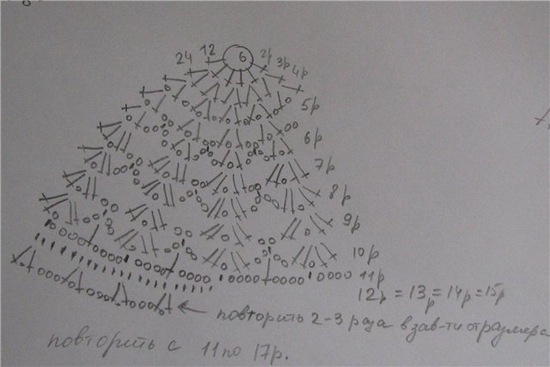 24 12 6 2р 3р 4р
5р
6р
7р
8р
9р
10р
11р
12р = 13р = 14р = 15р
повторить 2-3 раза в зав-ти от размера
повторить с 11 по 17р.